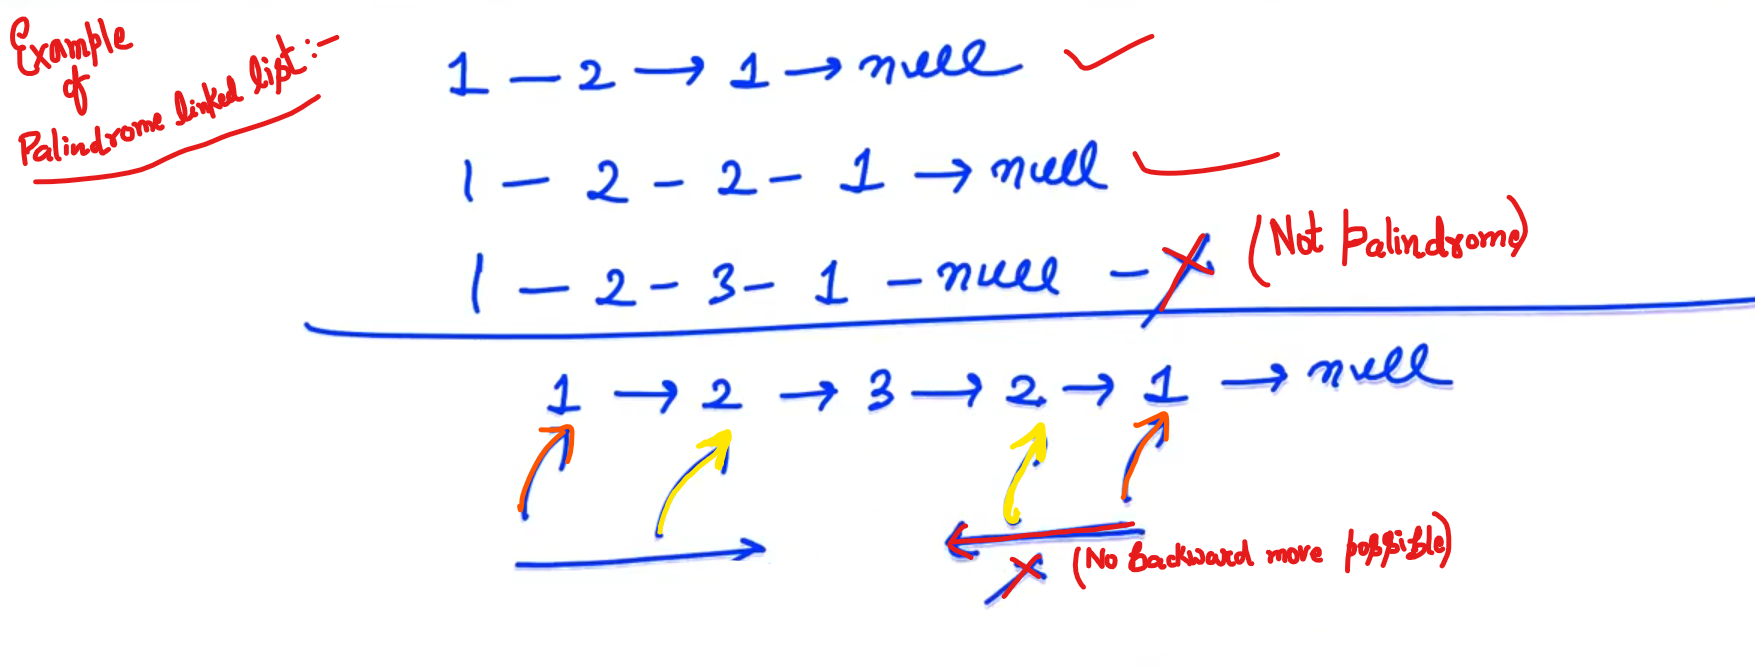 Example
of
Palindrome linked list:-
1 — 2 → 1 → null ✓
1 — 2 - 2 - 1 → null ✓
1 — 2 - 3 - 1 - null - ✗ (Not palindrome)
1 → 2 → 3 → 2 → 1 → null
✗ (No backward move possible)